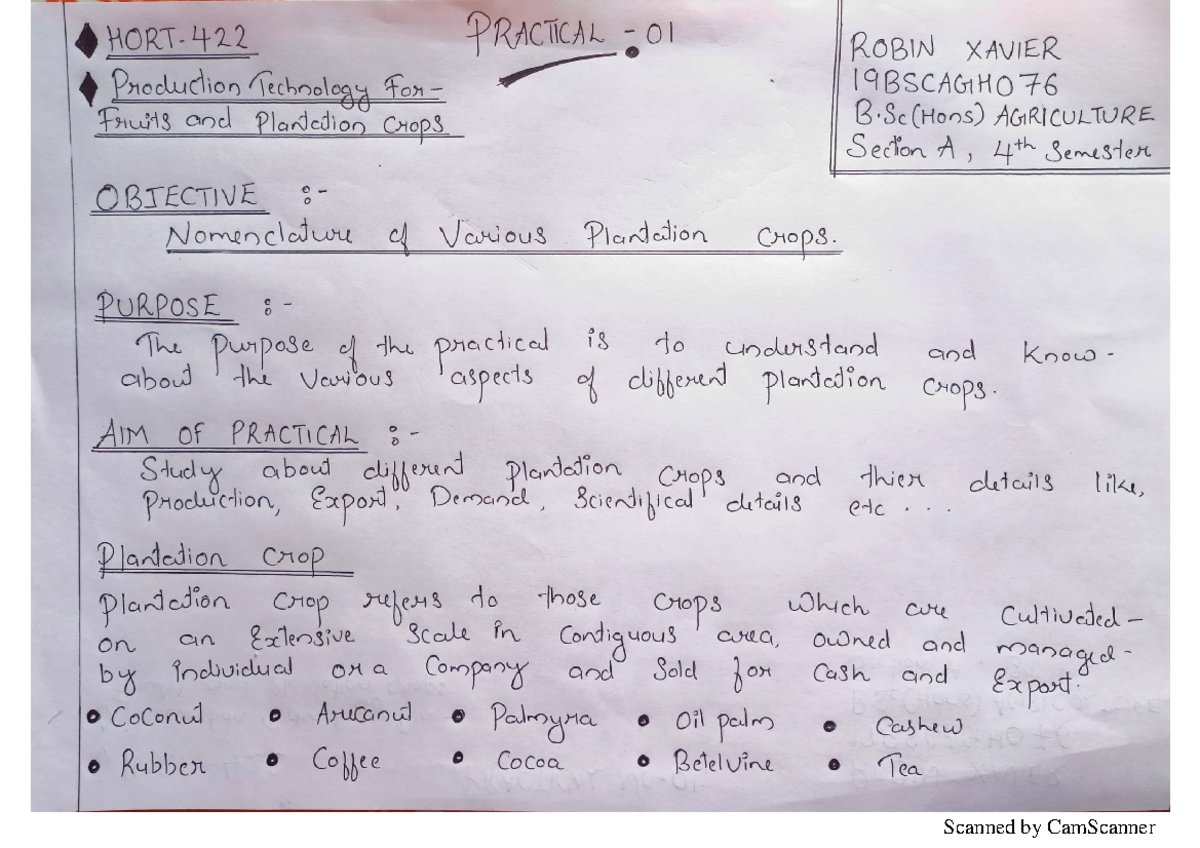 HORT-422
PRACTICAL - 01
Production Technology For-
Fruits and Plantation Crops
ROBIN XAVIER
19BSCAGH076
B.Sc(Hons) AGRICULTURE
Section A, 4th Semester
OBJECTIVE :-
Nomenclature of Various Plantation Crops.
PURPOSE :-
The purpose of the practical is to understand and know-
about the various aspects of different plantation crops.
AIM OF PRACTICAL :-
Study about different plantation crops and thier details like,
Production, Export, Demand, Scientifical details etc ....
Plantation Crop
Plantation crop refers to those crops which are cultivated-
on an Extensive scale in contiguous area, owned and managed-
by individual or a company and sold for cash and Export.
• Coconut • Arecanut • Palmyra • Oil palm • Cashew
• Rubber • Coffee • Cocoa • Betelvine • Tea
Scanned by CamScanner